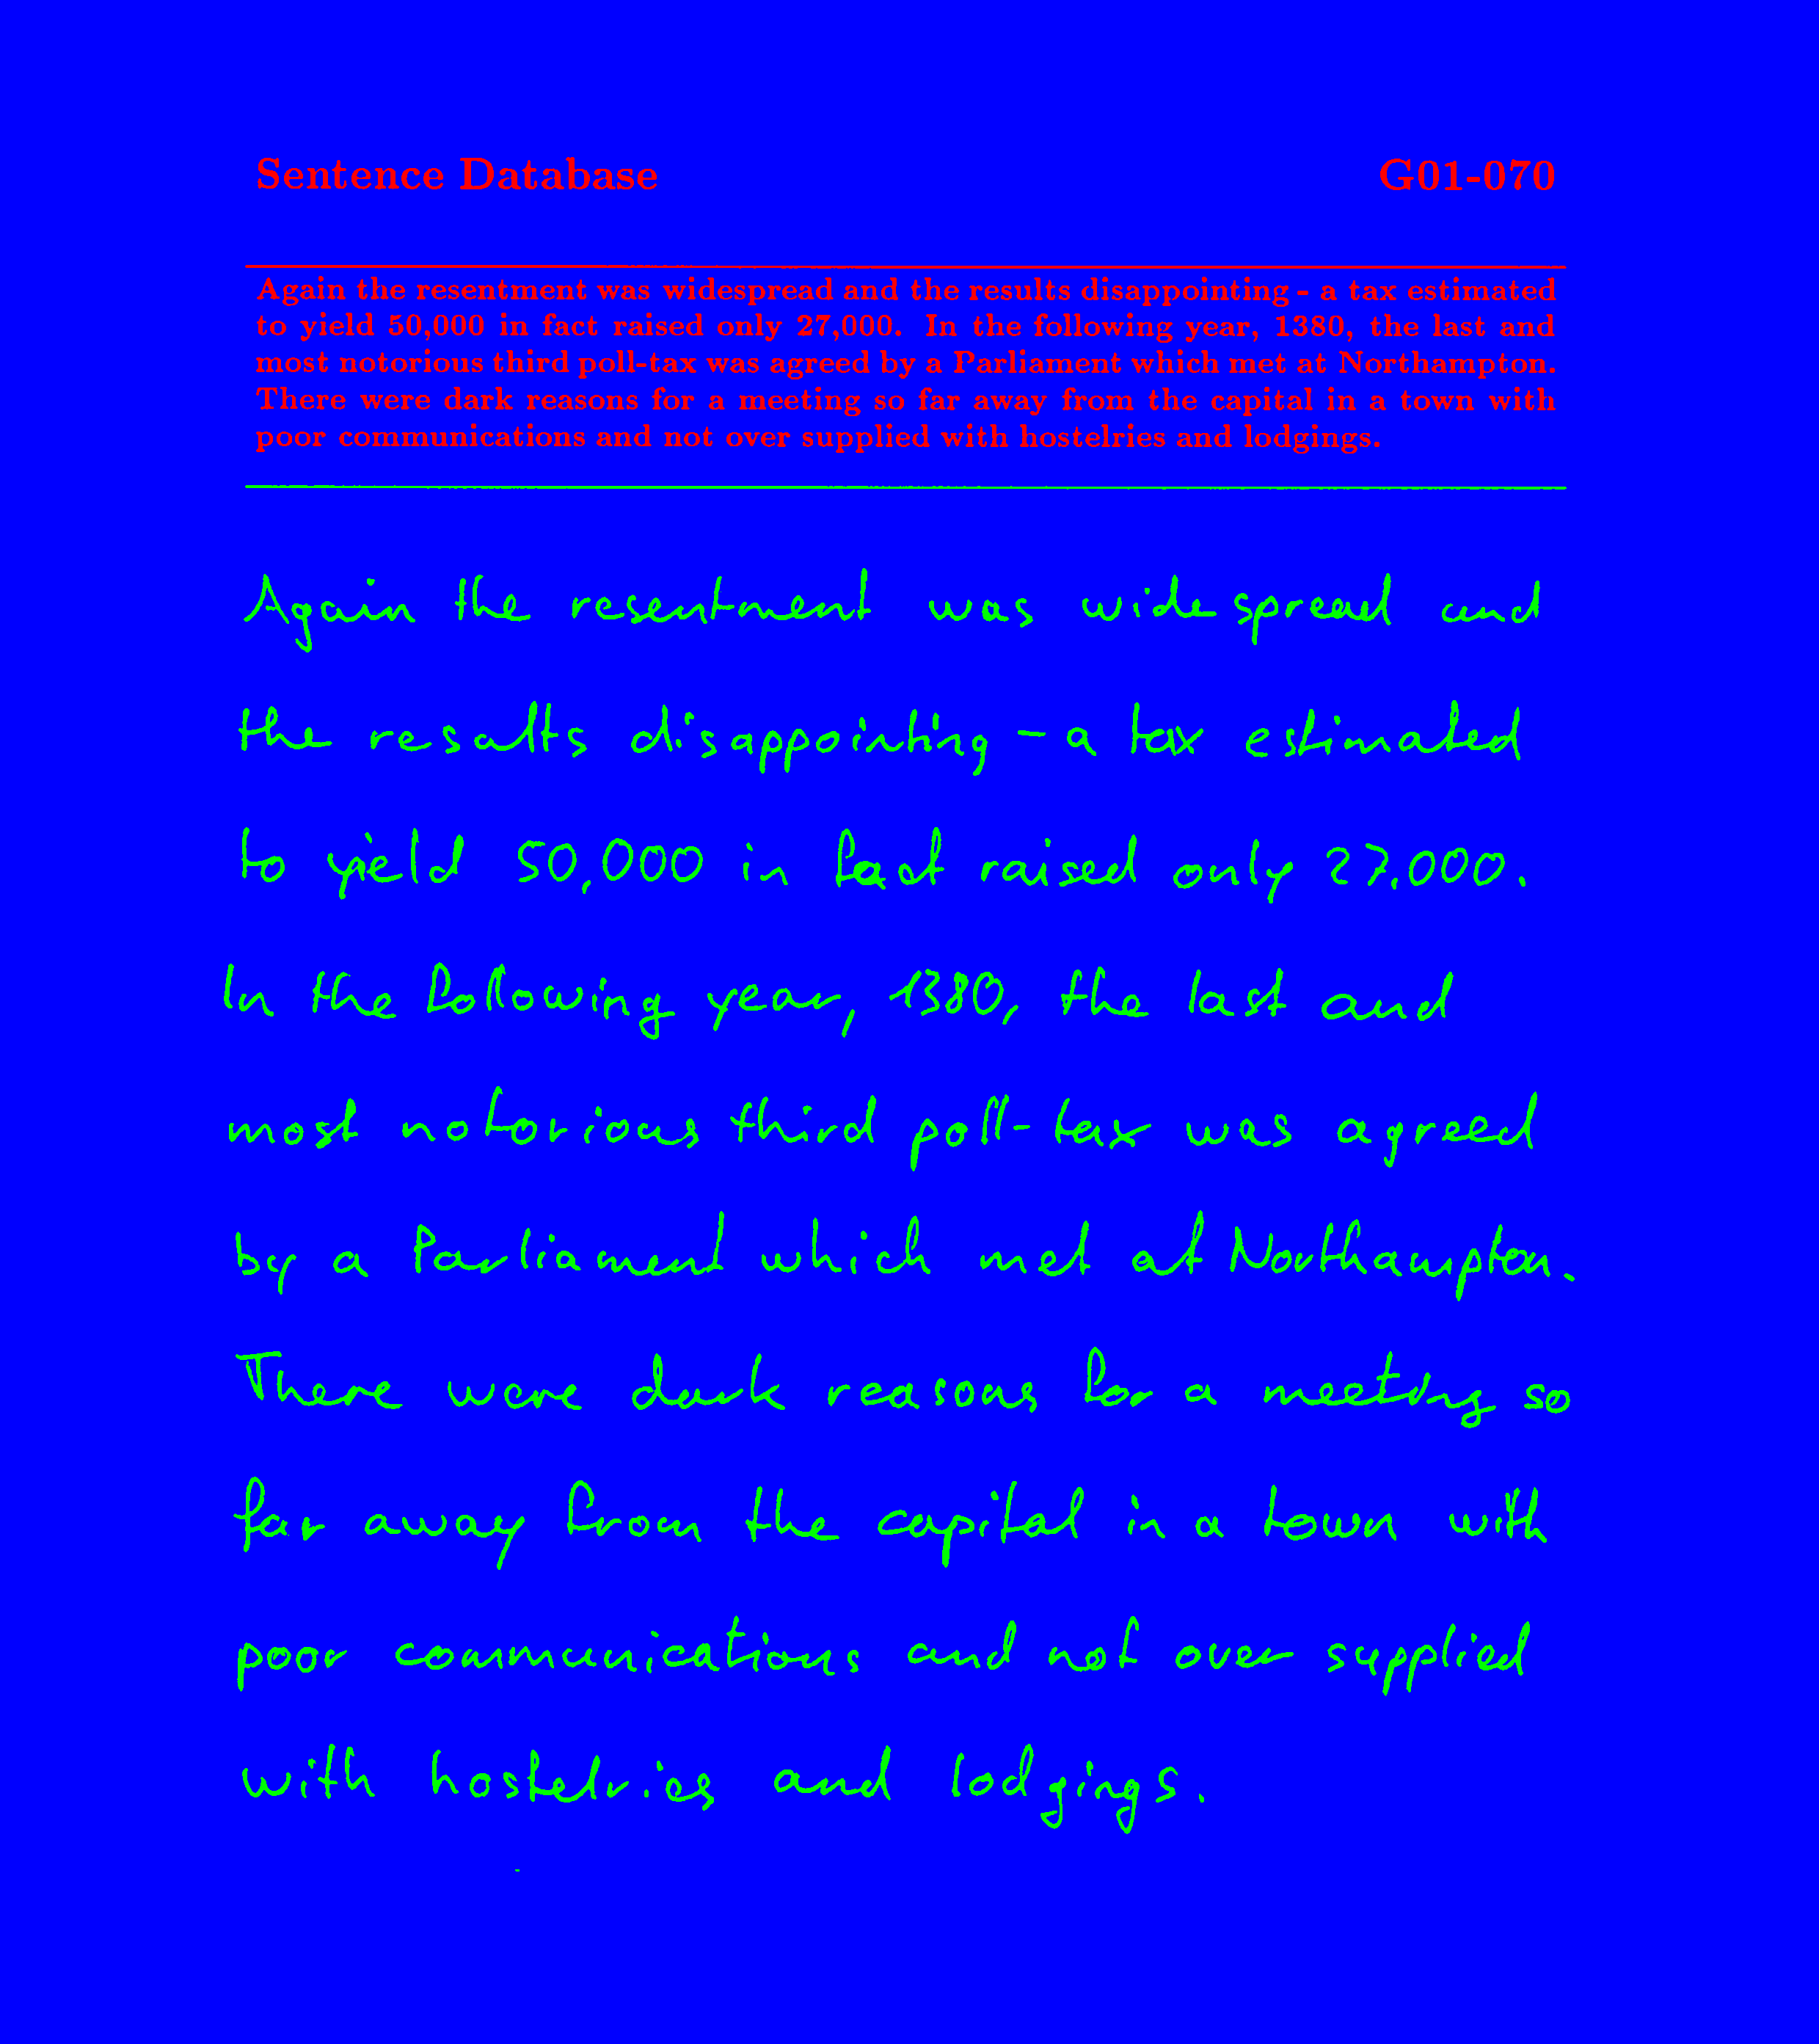 Sentence Database G01-070
Again the resentment was widespread and the results disappointing - a tax estimated
to yield 50,000 in fact raised only 27,000. In the following year, 1380, the last and
most notorious third poll-tax was agreed by a Parliament which met at Northampton.
There were dark reasons for a meeting so far away from the capital in a town with
poor communications and not over supplied with hostelries and lodgings.
Again the resentment was widespread and
the results disappointing - a tax estimated
to yield 50,000 in fact raised only 27.000.
In the following year, 1380, the last and
most notorious third poll-tax was agreed
by a Parliament which met at Northampton.
There were dark reasons for a meeting so
far away from the capital in a town with
poor communications and not over supplied
with hostelries and lodgings.